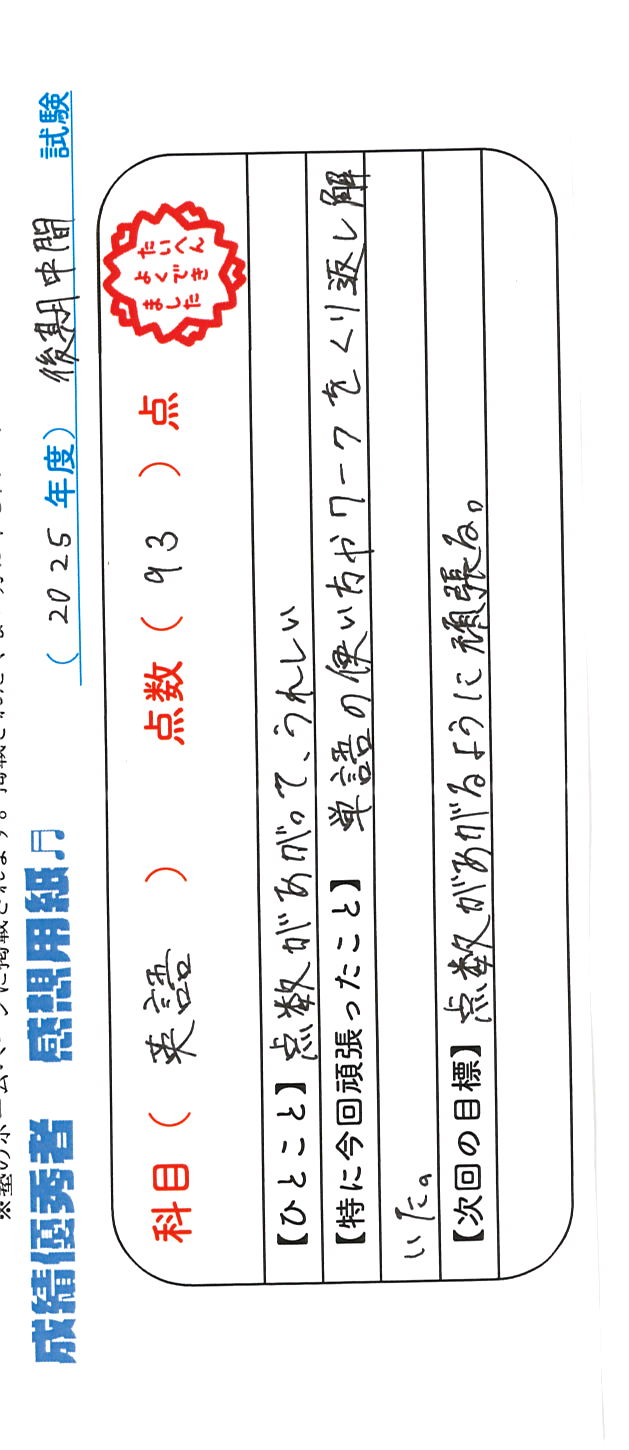 成績優秀者 感想用紙
（2025年度）後期中間 試験
科目（ 英語 ） 点数（ 93 ）点
たいへん
よくでき
ました
【ひとこと】点数があがって、うれしい
【特に今回頑張ったこと】単語の使いちやワークをくり返し解
いた。
【次回の目標】点数があがるように頑張る。